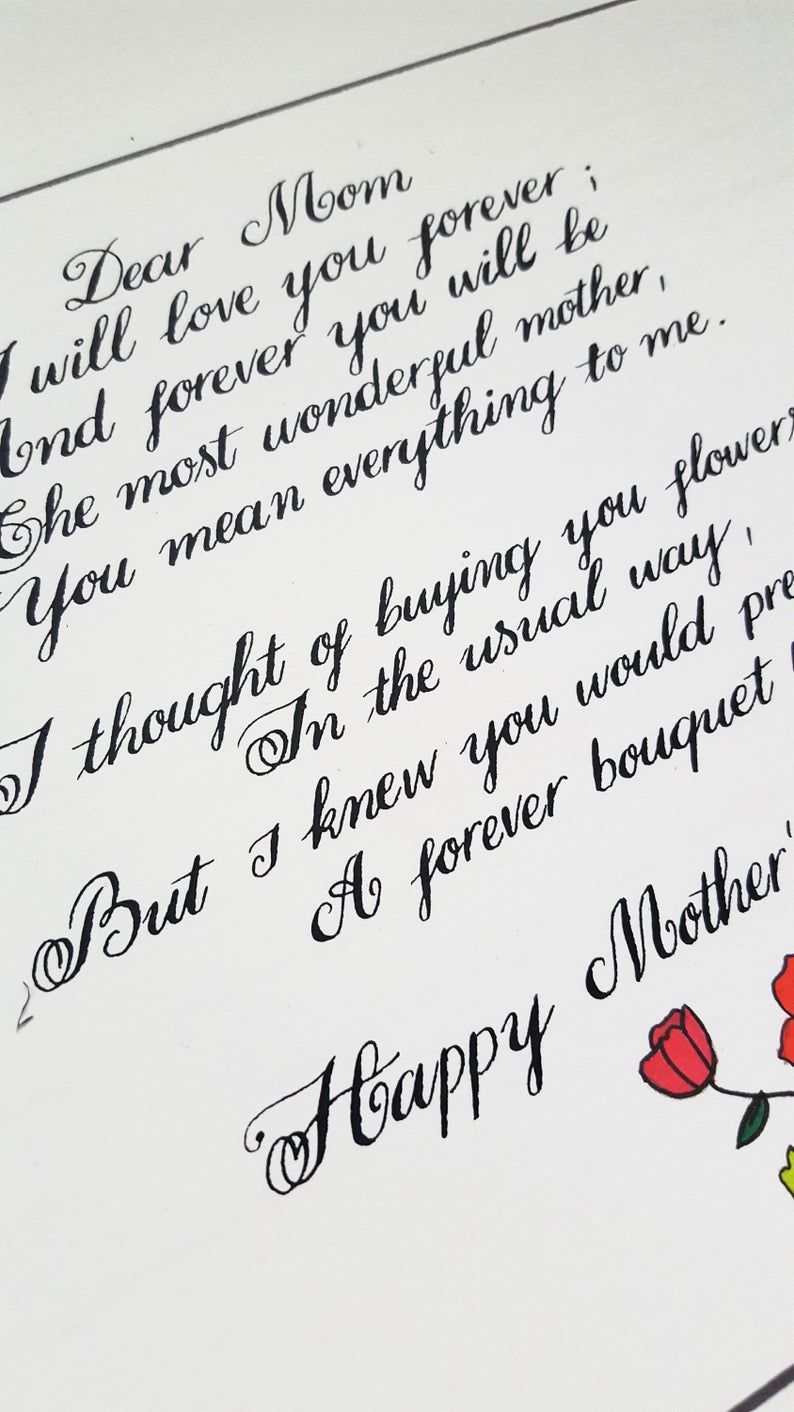 Dear Mom
I will love you forever;
And forever you will be
The most wonderful mother,
You mean everything to me.
I thought of buying you flowers
In the usual way,
But I knew you would
A forever bouquet
Happy Mother's